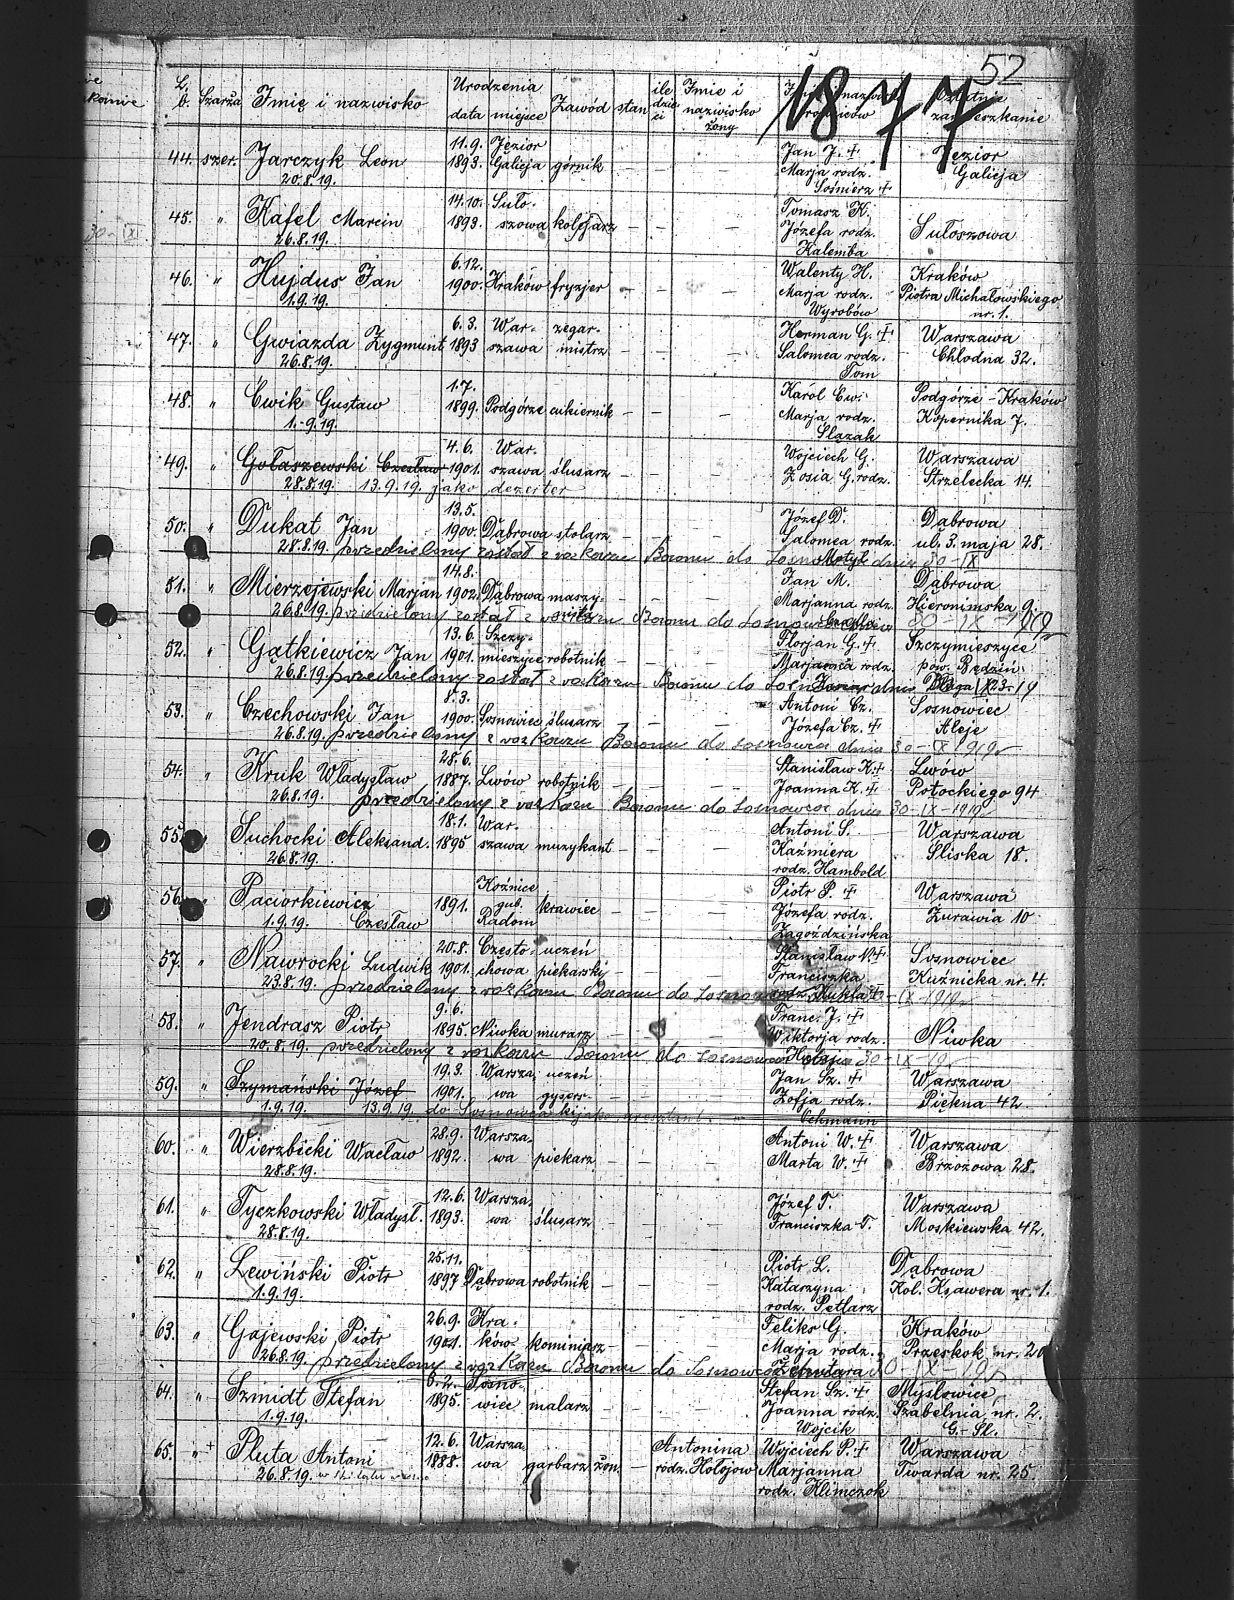 52
1877
L. b. Szarża Imię i nazwisko Urodzenia data miejsce Zawód stan ile dzieci Imie i nazwisko żony zamieszkanie
44. szer. Jarczyk Leon 11.9. 1893. Jęzior Galicja górnik Jan J. + Jęzior
20.8.19. Marja rodz. Sośnierz + Galicja
45. " Kafel Marcin 14.10. 1893. Sułoszowa kolejarz – – – Tomasz K. Sułoszowa
26.8.19. Józefa rodz. Kalemba
46. " Hujdus Jan 6.12. 1900. Kraków fryzjer – – – Walenty H. Kraków
1.9.19. Marja rodz. Wyrobów Piotra Michałowskiego nr. 1.
47. " Gwiazda Zygmunt 6.3. 1893 Warszawa zegarmistrz – – – Herman G. + Warszawa
26.8.19. Salomea rodz. Tom Chłodna 32.
48. " Ćwik Gustaw 1.7. 1899. Podgórze cukiernik – – – Karól Ćw. Podgórze - Kraków
1.-9.19. Marja rodz. Slązak Kopernika 7.
49. " Gołaszewski Czesław 4.6. 1901. Warszawa ślusarz – – – Wojciech G. Warszawa
28.8.19. 13.9.19. jako dezerter Zosia G. rodz. Strzelecka 14.
50. " Dukat Jan 13.5. 1900. Dąbrowa stolarz – – – Józef D. Dąbrowa
Salomea rodz. Motyl ul. 3. maja 28.
28.8.19. przedzielony został z rozkazu Baonu do Sosnowca dnia 30-IX
51. " Mierzejewski Marjan 14.8. 1902. Dąbrowa maszynista – – – Jan M. Dąbrowa
Marjanna rodz. Hieronimska 9.
26.8.19. przedzielony został z rozkazu Baonu do Sosnowca 30-IX-1919
52. " Gątkiewicz Jan 13.6. 1901. Szczymieszyce robotnik – – – Florjan G. + Szczymieszyce
Marjanna rodz. pow. Będzin
26.8.19. przedzielony został z rozkazu Baonu do
53. " Czechowski Jan 8.3. 1900. Sosnowiec ślusarz – – – Antoni Cz. Sosnowiec
Józefa Cz. + Aleje
26.8.19. przedzielony z rozkazu Baonu do Sosnowca dnia 30-IX 1919
54. " Kruk Władysław 28.6. 1887. Lwów robotnik – – – Stanisław K. + Lwów
Joanna K. + Potockiego 94
26.8.19. przedzielony z rozkazu Baonu do Sosnowca dnia 30-IX-1919
55. " Suchocki Aleksand. 18.1. 1895 Warszawa muzykant – – – Antoni S. Warszawa
26.8.19. Kaźmiera rodz. Hambold Śliska 18.
56. " Paciorkiewicz Czesław 1891. Koźnice gub. Radom krawiec – – – Piotr P. + Warszawa
1.9.19. Józefa rodz. Zagoździńska Żurawia 10
57. " Nawrocki Ludwik 20.8. 1901. Częstochowa uczeń piekarski – – – Stanisław N. + Sosnowiec
Franciszka rodz. Kukla + Kuźnicka nr. 4.
23.8.19. przedzielony z rozkazu Baonu do Sosnowca -IX-1919
58. " Jendrasz Piotr 9.6. 1895. Niwka murarz – – – Franc. J. + Niwka
Wiktorja rodz.
20.8.19. przedzielony z rozkazu Baonu do Sosnowca 30-IX-19
59. " Szymański Józef 19.3. 1901. Warszawa uczeń – – – Jan Sz. + Warszawa
Zofja rodz. Piękna 42
1.9.19. 13.9.19. do Sosnowca
60. " Wierzbicki Wacław 28.9. 1892. Warszawa piekarz – – – Antoni W. + Warszawa
28.8.19. Marta W. + Brzozowa 28.
61. " Tyczkowski Władysł. 12.6. 1893. Warszawa ślusarz – – – Józef T. Warszawa
28.8.19. Franciszka T. Moskiewska 42.
62. " Lewiński Piotr 25.11. 1897 Dąbrowa robotnik – – – Piotr L. Dąbrowa
1.9.19. Katarzyna rodz. Petlarz Kol. Ksawera nr. 1.
63. " Gajewski Piotr 26.9. 1901. Kraków kominiarz – – – Feliks G. Kraków
Marja rodz. Przeskok nr. 20
26.8.19. przedzielony z rozkazu Baonu do Sosnowca 30-IX-19
64. " Szmidt Stefan 6.2. 1895. Sosnowiec malarz – – – Stefan Sz. + Mysłowice
1.9.19. Joanna rodz. Wojcik Szabelnia nr. 2. G.-Śl.
65. " + Pluta Antoni 12.6. 1888. Warszawa garbarz żon. – Antonina rodz. Hołojow Wojciech P. + Warszawa
26.8.19. Marjanna rodz. Klimczok Twarda nr. 25.